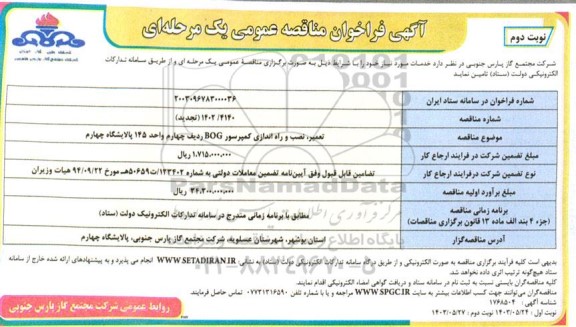 آگهی فراخوان مناقصه عمومی یک مرحله‌ای
نوبت دوم
شرکت مجتمع گاز پارس جنوبی در نظر دارد خدمات مورد نیاز خود را با شرایط ذیل به صورت برگزاری مناقصه عمومی یک مرحله ای و از طریق سامانه تدارکات
الکترونیکی دولت (ستاد) تامین نماید
شماره فراخوان در سامانه ستاد ایران
۲۰۰۳۰۹۶۷۸۳۰۰۰۰۳۶
شماره مناقصه
۱۴۰۲/۴۱۴۰ (تجدید)
موضوع مناقصه
تعمیر، نصب و راه اندازی کمپرسور BOG ردیف چهارم واحد ۱۴۵ پالایشگاه چهارم
مبلغ تضمین شرکت در فرایند ارجاع کار
۱.۷۱۵.۰۰۰.۰۰۰ ریال
نوع تضمین شرکت درفرایند ارجاع کار
تضامین قابل قبول وفق آیین‌نامه تضمین معاملات دولتی به شماره ۱۲۳۴۰۲/ت۵۰۶۵۹هـ مورخ ۹۴/۰۹/۲۲ هیات وزیران
مبلغ برآورد اولیه مناقصه
۳۴.۳۰۰.۰۰۰.۰۰۰ ریال
برنامه زمانی مناقصه
(جزء ۴ بند الف ماده ۱۳ قانون برگزاری مناقصات)
مطابق با برنامه زمانی مندرج در سامانه تدارکات الکترونیک دولت (ستاد)
آدرس مناقصه‌گزار
استان بوشهر، شهرستان عسلویه، شرکت مجتمع گاز پارس جنوبی، پالایشگاه چهارم
بدیهی است کلیه فرآیند برگزاری مناقصه به صورت الکترونیکی و از طریق درگاه سامانه تدارکات الکترونیکی دولت (ستاد) به نشانی: WWW.SETADIRAN.IR انجام می پذیرد و به پیشنهادهای ارائه شده خارج از سامانه
ستاد هیچ‌گونه ترتیب اثری داده نخواهد شد.
کلیه مناقصه‌گران بایستی نسبت به ثبت نام در سامانه ستاد و دریافت گواهی امضاء الکترونیکی اقدام نمایند.
مناقصه‌گران می‌توانند جهت کسب اطلاعات بیشتر به سایت WWW.SPGC.IR مراجعه و یا با شماره تلفن ۰۷۷۳۱۳۱۶۵۹۰ تماس حاصل فرمایند.
شناسه آگهی : ۱۷۶۸۵۰۴
نوبت اول : ۱۴۰۳/۰۵/۲۴ نوبت دوم : ۱۴۰۳/۰۵/۲۷
روابط عمومی شرکت مجتمع گاز پارس جنوبی